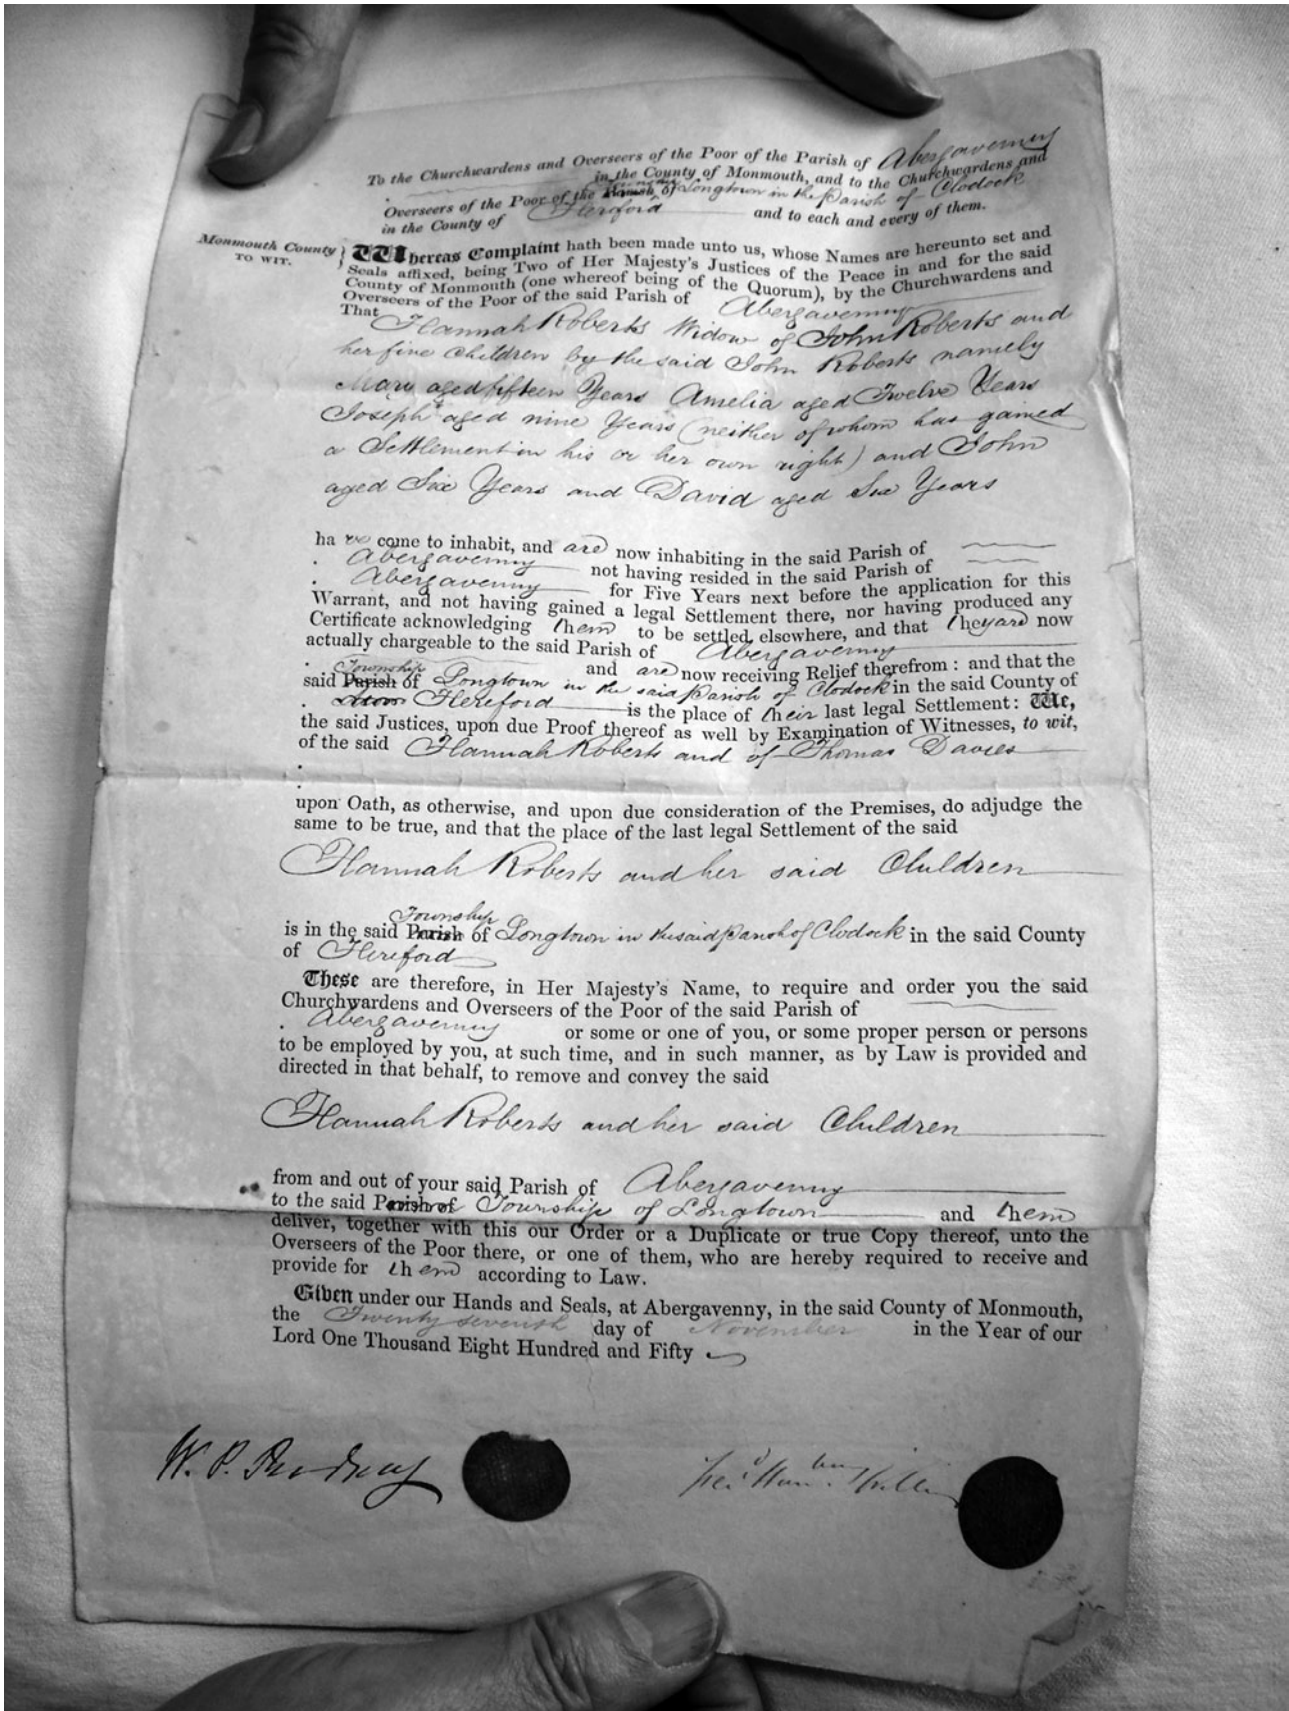 To the Churchwardens and Overseers of the Poor of the Parish of Abergavenny
in the County of Monmouth, and to the Churchwardens and
Overseers of the Poor of the Parish of Township Longtown in the Parish of Clodock
in the County of Hereford and to each and every of them.
Monmouth County
TO WIT.
Whereas Complaint hath been made unto us, whose Names are hereunto set and
Seals affixed, being Two of Her Majesty's Justices of the Peace in and for the said
County of Monmouth (one whereof being of the Quorum), by the Churchwardens and
Overseers of the Poor of the said Parish of Abergavenny
That Hannah Roberts Widow of John Roberts and
her five Children by the said John Roberts namely
Mary aged fifteen Years Amelia aged Twelve Years
Joseph aged nine Years (neither of whom has gained
a Settlement in his or her own right) and John
aged Six Years and David aged Six Years
have come to inhabit, and are now inhabiting in the said Parish of
Abergavenny not having resided in the said Parish of
Abergavenny for Five Years next before the application for this
Warrant, and not having gained a legal Settlement there, nor having produced any
Certificate acknowledging them to be settled elsewhere, and that they are now
actually chargeable to the said Parish of Abergavenny
and are now receiving Relief therefrom: and that the
said Parish Township of Longtown in the said Parish of Clodock in the said County of
Hereford is the place of their last legal Settlement: We,
the said Justices, upon due Proof thereof as well by Examination of Witnesses, to wit,
of the said Hannah Roberts and of Thomas Davies
upon Oath, as otherwise, and upon due consideration of the Premises, do adjudge the
same to be true, and that the place of the last legal Settlement of the said
Hannah Roberts and her said Children
is in the said Parish Township of Longtown in the said Parish of Clodock in the said County
of Hereford
These are therefore, in Her Majesty's Name, to require and order you the said
Churchwardens and Overseers of the Poor of the said Parish of
Abergavenny or some or one of you, or some proper person or persons
to be employed by you, at such time, and in such manner, as by Law is provided and
directed in that behalf, to remove and convey the said
Hannah Roberts and her said Children
from and out of your said Parish of Abergavenny
to the said Parish of Township of Longtown and them
deliver, together with this our Order or a Duplicate or true Copy thereof, unto the
Overseers of the Poor there, or one of them, who are hereby required to receive and
provide for them according to Law.
Given under our Hands and Seals, at Abergavenny, in the said County of Monmouth,
the Twenty seventh day of November in the Year of our
Lord One Thousand Eight Hundred and Fifty
W. P.